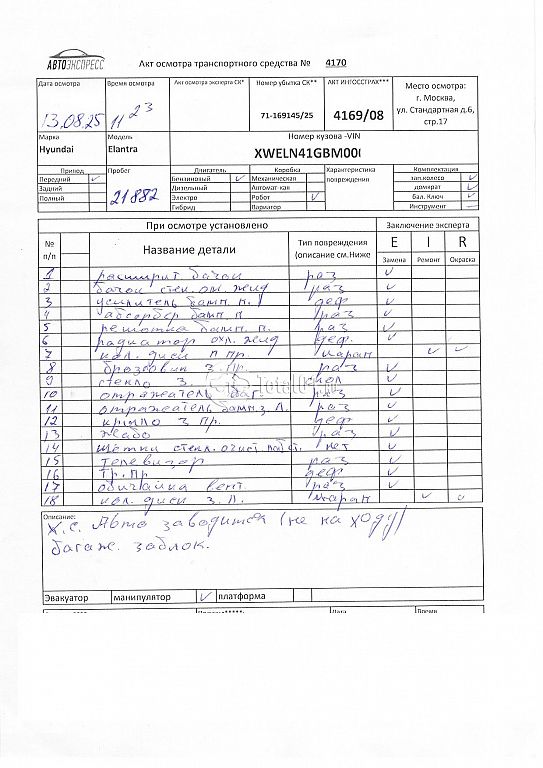 АВТОЭКСПРЕСС
Акт осмотра транспортного средства № 4170
Дата осмотра
13.08.25
Время осмотра
11 23
Акт осмотра эксперта СК*
Номер убытка СК**
71-169145/25
АКТ ИНГОССТРАХ***
4169/08
Место осмотра:
г. Москва,
ул. Стандартная д.6,
стр.17
Марка
Hyundai
Модель
Elantra
Номер кузова -VIN
XWELN41GBM00
Привод
Передний
Задний
Полный
Пробег
21882
Двигатель
Бензиновый
Дизельный
Электро
Гибрид
Коробка
Механическая
Автомат кая
Робот
Вариатор
Характеристика
повреждения
Комплектация
зап.колесо
домкрат
бал. Ключ
Инструмент
№ п/п
При осмотре установлено
Заключение эксперта
Название детали
Тип повреждения
(описание см.Ниже
E I R
Замена Ремонт Окраска
1 расширит бачок раз
2 бачок стек. ом. жид раз
3 усилитель бамп. п. деф
4 абсорбер бамп. п раз
5 решотка бамп. п. раз
6 радиатор охл. жид деф.
7 кол. диск п пр. царап
8 брызговик з. пр. раз
9 стекло з. скол
10 отражатель баг. раз
11 отражатель бамп.з. Л. раз
12 крыло з пр. деф
13 жабо раз
14 щётки стекл. очист. нет
15 телевизор раз
16 деф
17 обичайка вент. раз
18 кол. диск з. Л. царап
Описание:
Х.С. Авто заводится (не на ходу)
багаж. заблок.
Эвакуатор манипулятор платформа